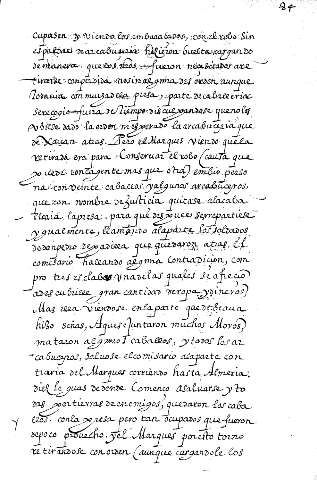 84
cupasen. y viendo los embaraçados, con el robo sin
esperar nr arcabuzeria hizieron buelta cargando
de manera que los nros. fueron necesitados a re
tirarse con perdida no sin alguna desorden, aunque
todavia con mucha de la presa, parte de cavalleria
se recogio fuera de tiempo disculpandose que no les
vbiese dado la orden ni esperado la arcabuzeria que
dexaran atras. Pero el Marques viendo que la
retirada era para conservar el robo (causa que
puede con la gente mas que otra) embio perso
na con veinte caballos y algunos arcabuzeros,
que con nombre de justicia quitase al a caba
lleria, la presa, para que despues se repartiese
ygualmente, llamando a la parte los soldados
de don pedro de padilla que quedaron atras. El
comisario hallando alguna contradicion, com
pro tres esclabas una de las quales se aficio
a descubrirle gran cantidad de ropa y dineros
Mas ella viendose en la parte que deseava
hizo señas, a que se juntaron muchos Moros,
mataron algunos caballos, y todos los ar
cabuzeros, salvose el comisario a la parte con
traria del Marques corriendo hasta Almeria
diez leguas de donde començo a salvarse y to
das por tierras de enemigos, quedaron los caba
llos. con la presa pero tan ocupados que fueron
de poco provecho. y el Marques por esto torno
retirandose con orden (aunque cargandole los